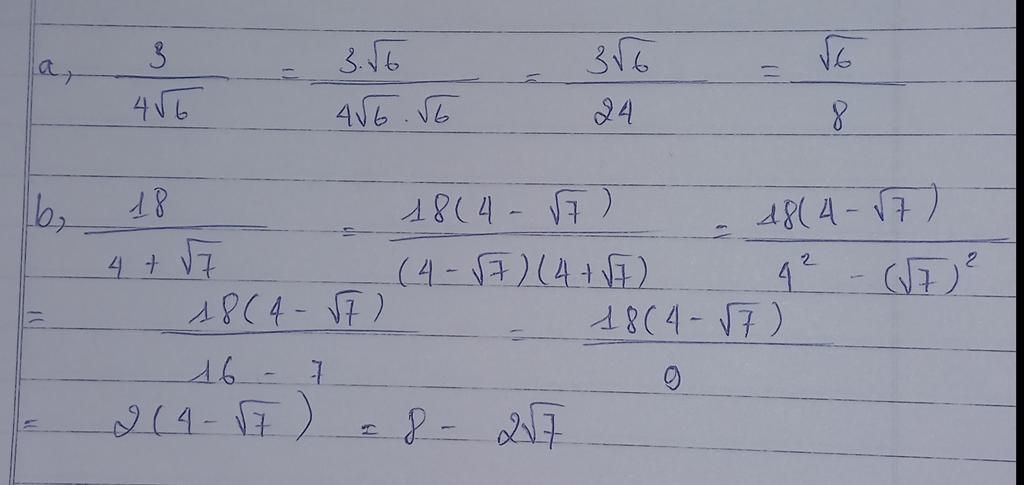 a, 3/(4√6) = (3.√6)/(4√6 . √6) = (3√6)/24 = √6/8
b, 18/(4 + √7) = (18(4 - √7))/((4-√7)(4+√7)) = (18(4-√7))/(4² - (√7)²)
= (18(4 - √7))/(16 - 7) = (18(4-√7))/9
= 2(4-√7) = 8 - 2√7